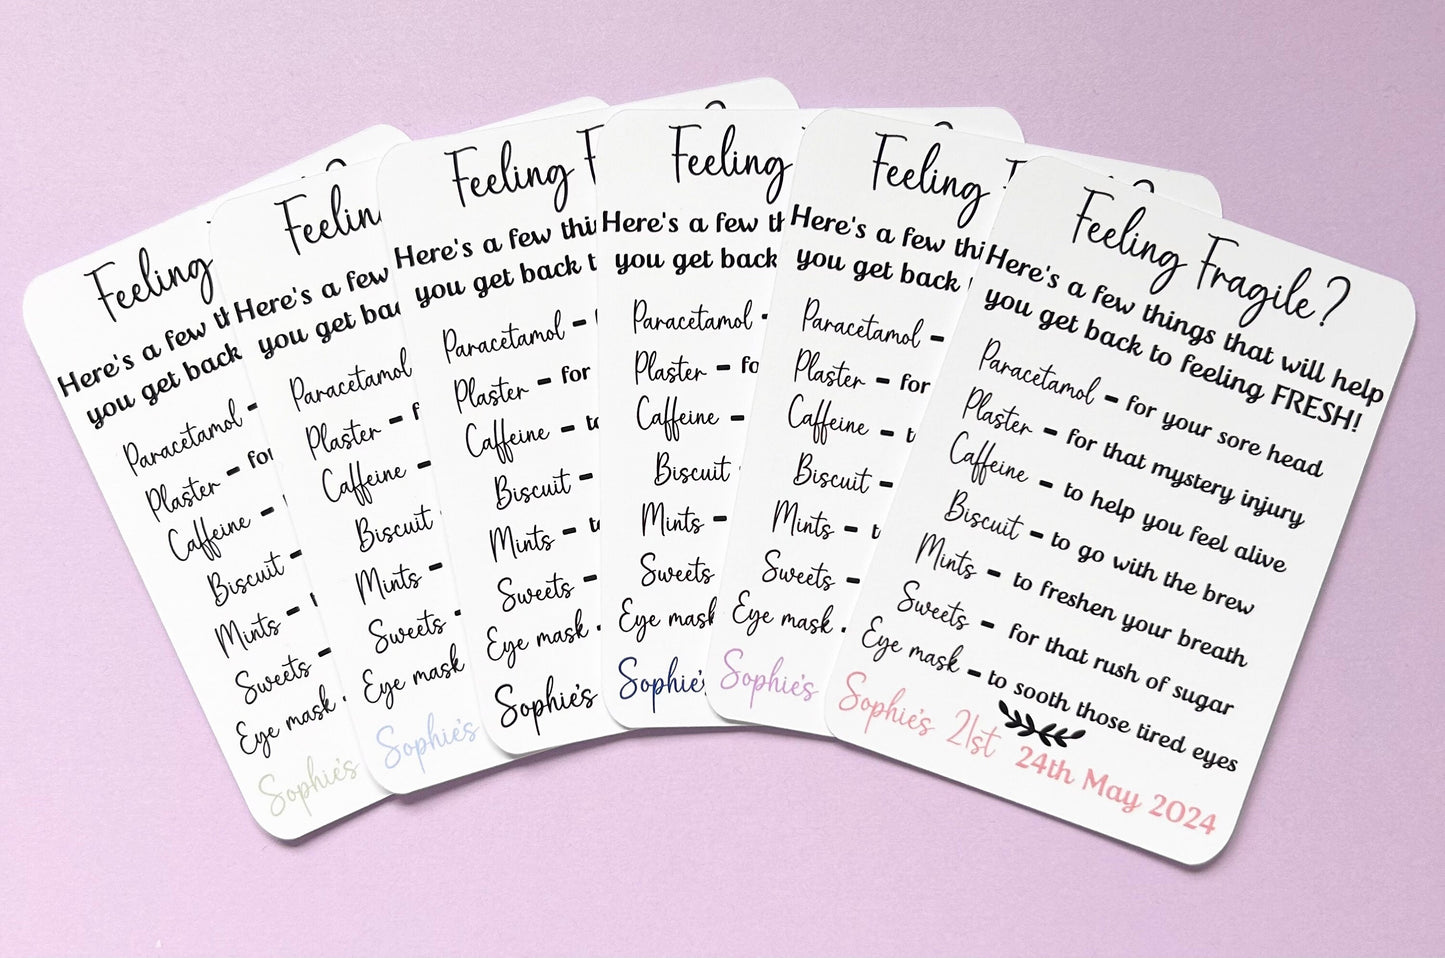 Feeling
Here's a few
you get back
Paracetamol -
Plaster - for
Caffeine -
Biscuit -
Mints -
Sweets -
Eye mask
Sophie's
Feeling
Here's a few
you get
Paracetamol
Plaster -
Caffeine -
Biscuit
Mints -
Sweets
Eye mask
Sophie's
Feeling
Here's a few
you get back
Paracetamol -
Plaster - for
Caffeine -
Biscuit -
Mints -
Sweets -
Eye mask
Sophie's
Feeling
Here's a few
you get back
Paracetamol
Plaster -
Caffeine -
Biscuit
Mints -
Sweets
Eye mask
Sophie's
Feeling
Here's a few
you get back
Paracetamol -
Plaster - for
Caffeine -
Biscuit -
Mints -
Sweets -
Eye mask
Sophie's
Feeling Fragile?
Here's a few things that will help
you get back to feeling FRESH!
Paracetamol - for your sore head
Plaster - for that mystery injury
Caffeine - to help you feel alive
Biscuit - to go with the brew
Mints - to freshen your breath
Sweets - for that rush of sugar
Eye mask - to sooth those tired eyes
Sophie's 21st
24th May 2024